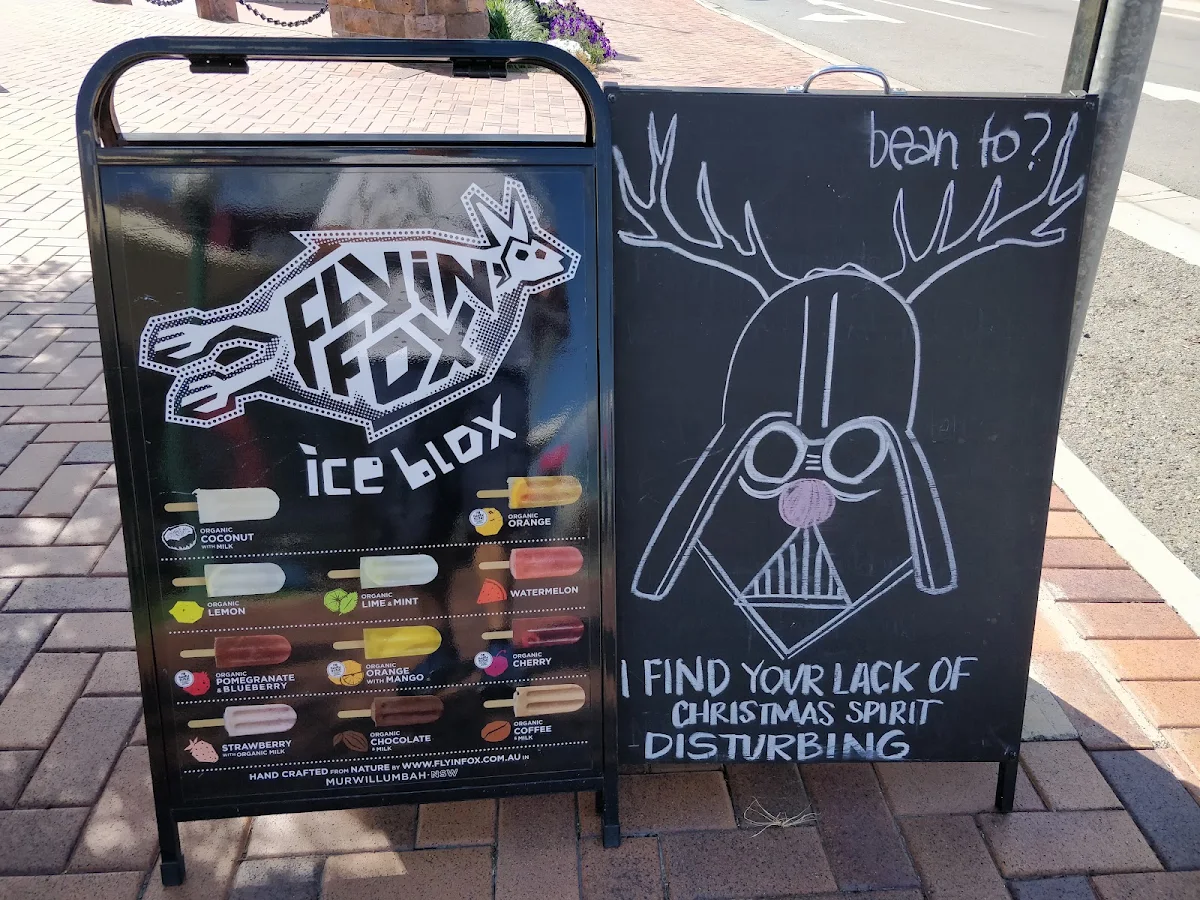 FLYiN'
FOX
ice blox
ORGANIC
COCONUT
WITH MILK
ORGANIC
ORANGE
ORGANIC
LEMON
ORGANIC
LIME & MINT
WATERMELON
ORGANIC
POMEGRANATE
& BLUEBERRY
ORGANIC
ORANGE
WITH MANGO
ORGANIC
CHERRY
STRAWBERRY
WITH ORGANIC MILK
ORGANIC
CHOCOLATE
& MILK
ORGANIC
COFFEE
& MILK
HAND CRAFTED FROM NATURE BY WWW.FLYINFOX.COM.AU IN
MURWILLUMBAH·NSW
bean to?
I FIND YOUR LACK OF
CHRISTMAS SPIRIT
DISTURBING